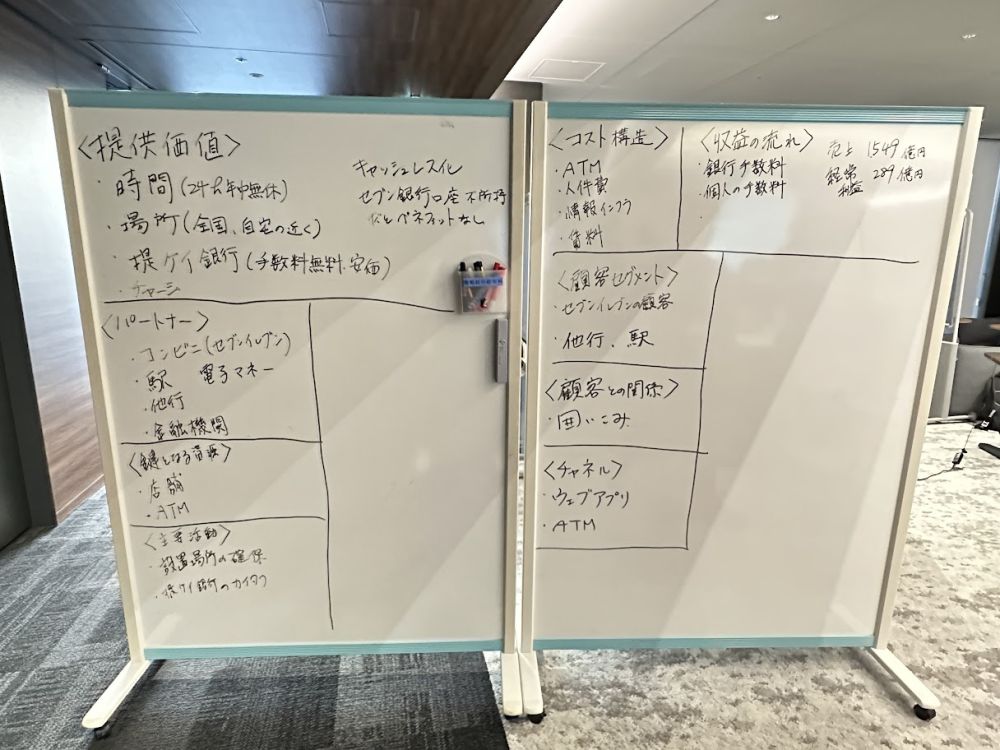 〈提供価値〉
・時間(24h年中無休)
・場所(全国、自宅の近く)
・提ケイ銀行(手数料無料、安価)
・チャージ
キャッシュレス化
セブン銀行口座不所持
だとベネフィットなし
〈パートナー〉
・コンビニ(セブンイレブン)
・駅 電子マネー
・他行
・金融機関
〈鍵となる資源〉
・店舗
・ATM
〈主要活動〉
・設置場所の確保
・提ケイ銀行のカイタク
〈コスト構造〉
・ATM
・人件費
・情報インフラ
・賃料
〈収益の流れ〉
・銀行手数料
・個人の手数料
・
売上 1549億円
経常利益 289億円
〈顧客セグメント〉
・セブンイレブンの顧客
他行、駅
〈顧客との関係〉
・囲いこみ
〈チャネル〉
・ウェブアプリ
・ATM